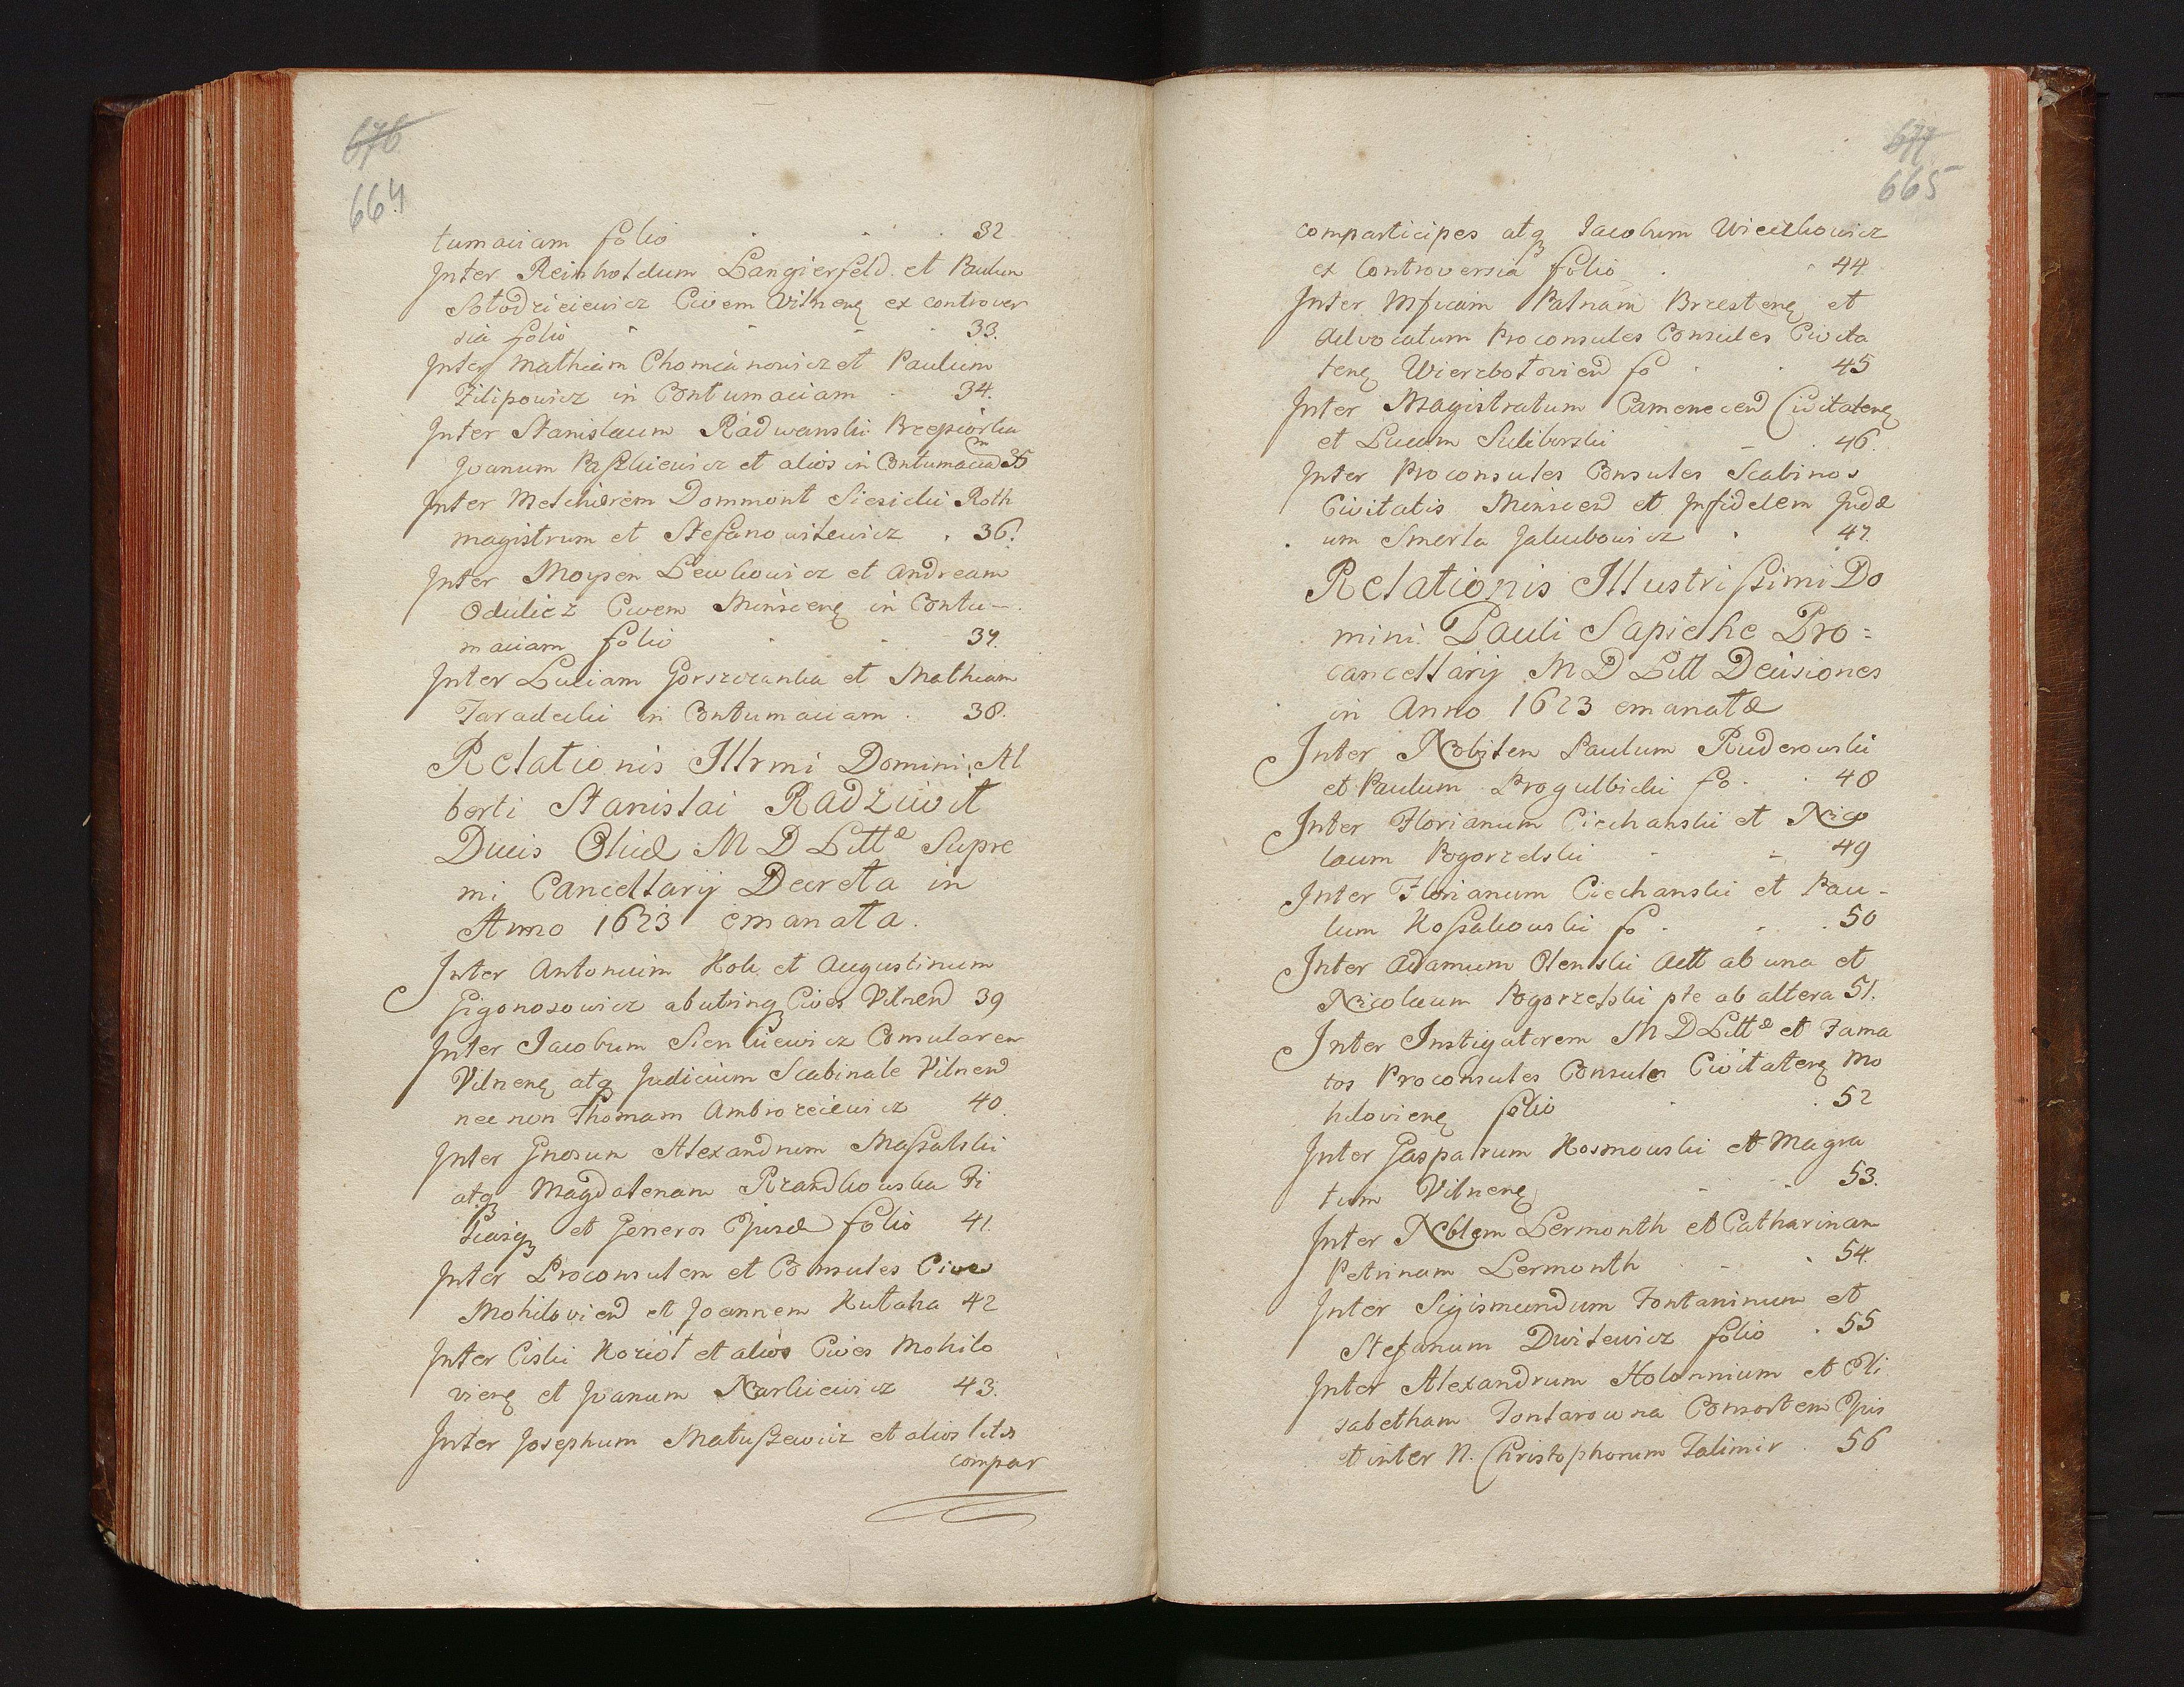 676
664
tumaciam folio 32
Inter Reinholdum Langierfeld et Paulum
Sołodziciewicz Civem Vilnenę ex controver
sia folio 33.
Inter Mathiam Chomianowicz et Paulum
Filipowicz in Contumaciam 34.
Inter Stanislaum Radwanski Przepiorka
Joanum Paszkiewicz et alios in Contumaciam 35
Inter Melchiorem Dommont Siesicki Roth
magistrum et Stefanowitewicz 36.
Inter Moysen Lewkowicz et Andream
Odulicz Civem Minscenę in Contu-
maciam folio 37.
Inter Luciam Gorszczanka et Mathiam
Taradecki in Contumaciam 38.
Relationis Illrmi Domini Al
berti Stanislai Radziwił
Ducis Olicæ M D Littæ Supre
mi Cancellarij Decreta in
Anno 1623 emanata.
Inter Antonium Hok et Augustinum
Gigonosowicz ab utrinq Cives Vilnen 39
Inter Jacobum Sienkiewicz Consularem
Vilnenę atq Judicium Scabinale Vilnen
nec non Thomam Ambrozeiewicz 40.
Inter Gnosum Alexandrum Massalski
atq Magdalenam Rzandkowska Fi
liasq et Generos Ejusd folio 41.
Inter Proconsulem et Consules Cives
Mohilovien et Joannem Kutaha 42
Inter Ciski Kozioł et alios Cives Mohilo
vienę et Joanum Narkiewicz 43.
Inter Josephum Matuszewicz et alios litis
compar
677
665
comparticipes atq Jacobum Wieczkowicz
ex Controversia folio 44.
Inter Mficum Patnam Brzestenę et
Advocatum Proconsules Consules Civita
tenę Wierzbołovien fo 45
Inter Magistratum Camenecen Civitatenę
et Lucam Suliborski 46.
Inter Proconsules Consules Scabinos
Civitatis Minscen et Infidelem Judæ
um Smerla Jakubowicz 47.
Relationis Illustrissimi Do
mini Pauli Sapiehe Pro=
cancellarij M D Litt Decisiones
in Anno 1623 emanatæ
Inter Nobilem Paulum Ruderowski
et Paulum Progulbicki fo 48
Inter Florianum Ciechanski et Nico
laum Pogorzelski 49
Inter Florianum Ciechanski et Pau-
lum Kossakowski fo 50
Inter Adamum Olenski Actt ab una et
Nicolaum Pogorzelski pte ab altera 51.
Inter Instigatorem M D Littæ et Fama
tos Proconsules Consules Civitatenę Mo
hilovienę folio 52
Inter Gasparum Kosmowski et Magra
tum Vilnenę 53.
Inter Noblem Lermonth et Catharinam
Petrinam Lermonth 54.
Inter Sigismundum Fontaninum et
Stefanum Dwilewicz folio 55
Inter Alexandrum Holonnium et Eli
sabetham Fontarowna Consortem Ejus
et inter N. Christophorum Talimir 56